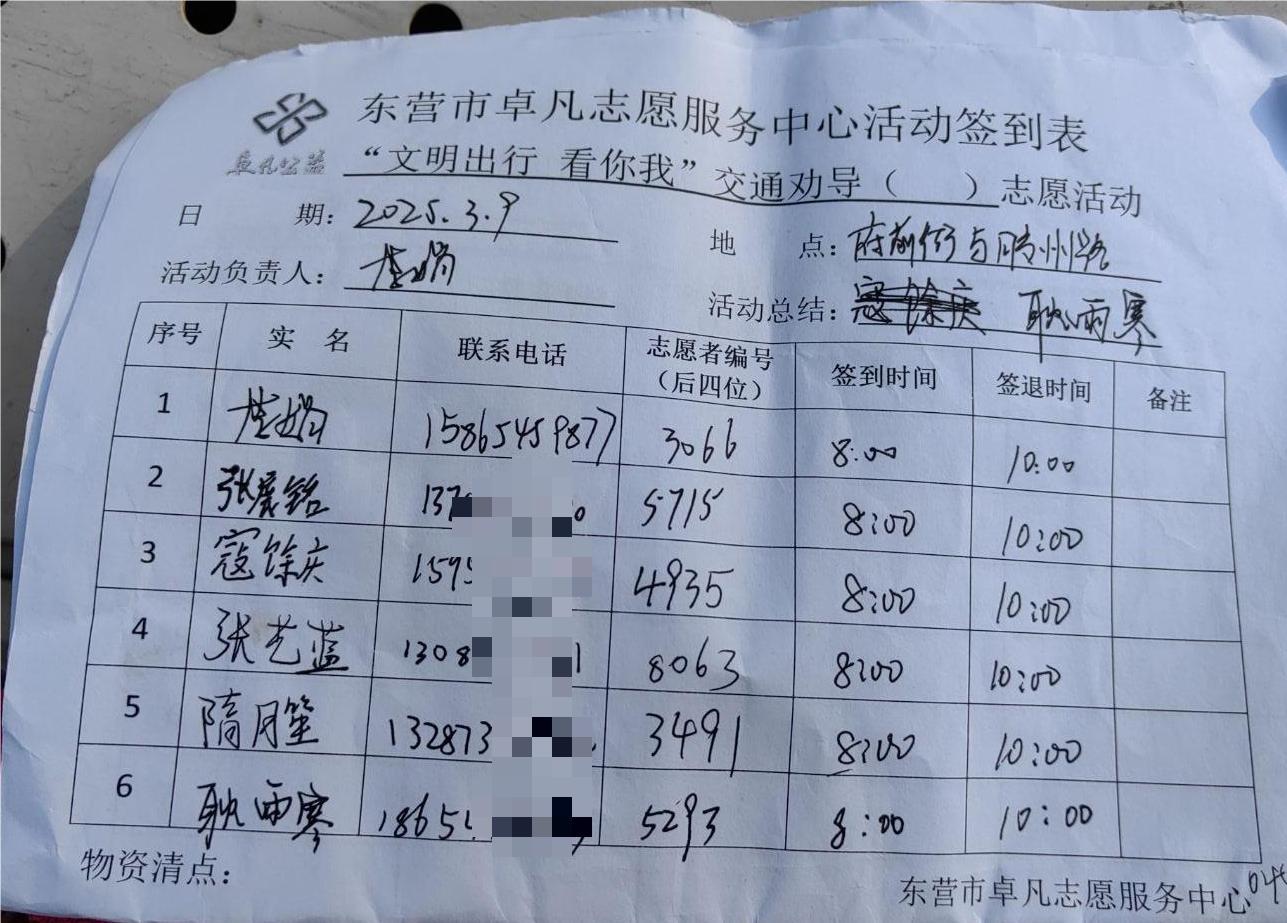 东营市卓凡志愿服务中心活动签到表
卓凡公益
“文明出行 看你我”交通劝导（ ）志愿活动
日 期：2025.3.9
地 点：府前街与胶州路
活动负责人：
活动总结：寇馀庆 耿雨寒
序号 实 名 联系电话 志愿者编号（后四位） 签到时间 签退时间 备注
1 15865459877 3066 8:00 10:00
2 张彦铭 5715 8:00 10:00
3 寇馀庆 1595 4935 8:00 10:00
4 张艺蓝 1308 8063 8:00 10:00
5 隋月笙 132873 3491 8:00 10:00
6 耿雨寒 1865 5293 8:00 10:00
物资清点：
东营市卓凡志愿服务中心